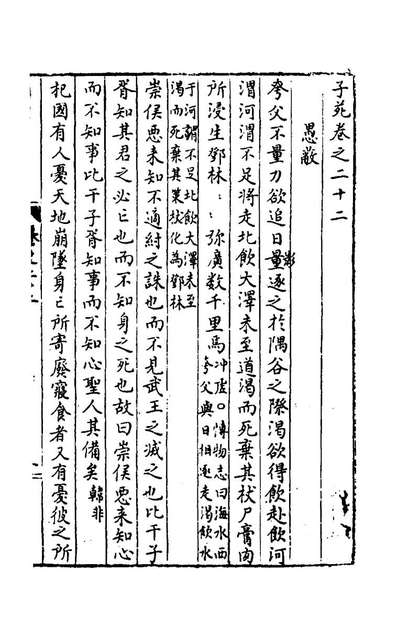 子苑卷之二十二
愚敝
夸父不量力欲追日量影逐之於隅谷之際渴欲得飲赴飲河
渭河渭不足將走北飲大澤未至道渴而死棄其杖尸膏肉
所浸生鄧林〻弥廣数千里馬
冲虛〇博物志曰海水西
夸父與日相逐走渴飲水
于河渭不足北飲大澤未至
渴而死棄其策杖化為鄧林
崇侯悪来知不適紂之誅也而不見武王之滅之也比干子
胥知其君之必亡也而不知身之死也故曰崇侯悪来知心
而不知事比干子胥知事而不知心聖人其備矣
韓非
杞國有人憂天地崩墜身亡所寄廢寢食者又有憂彼之所